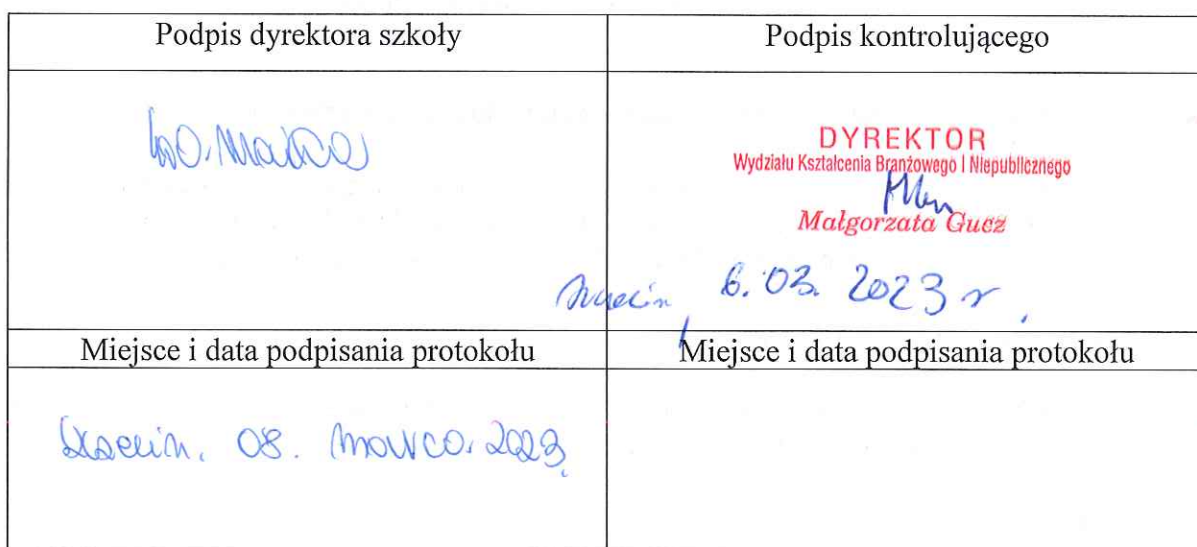 Podpis dyrektora szkoły
Podpis kontrolującego
DYREKTOR
Wydziału Kształcenia Branżowego i Niepublicznego
Małgorzata Gucz
6.03. 2023 r.
Miejsce i data podpisania protokołu
Miejsce i data podpisania protokołu
08. marca 2023